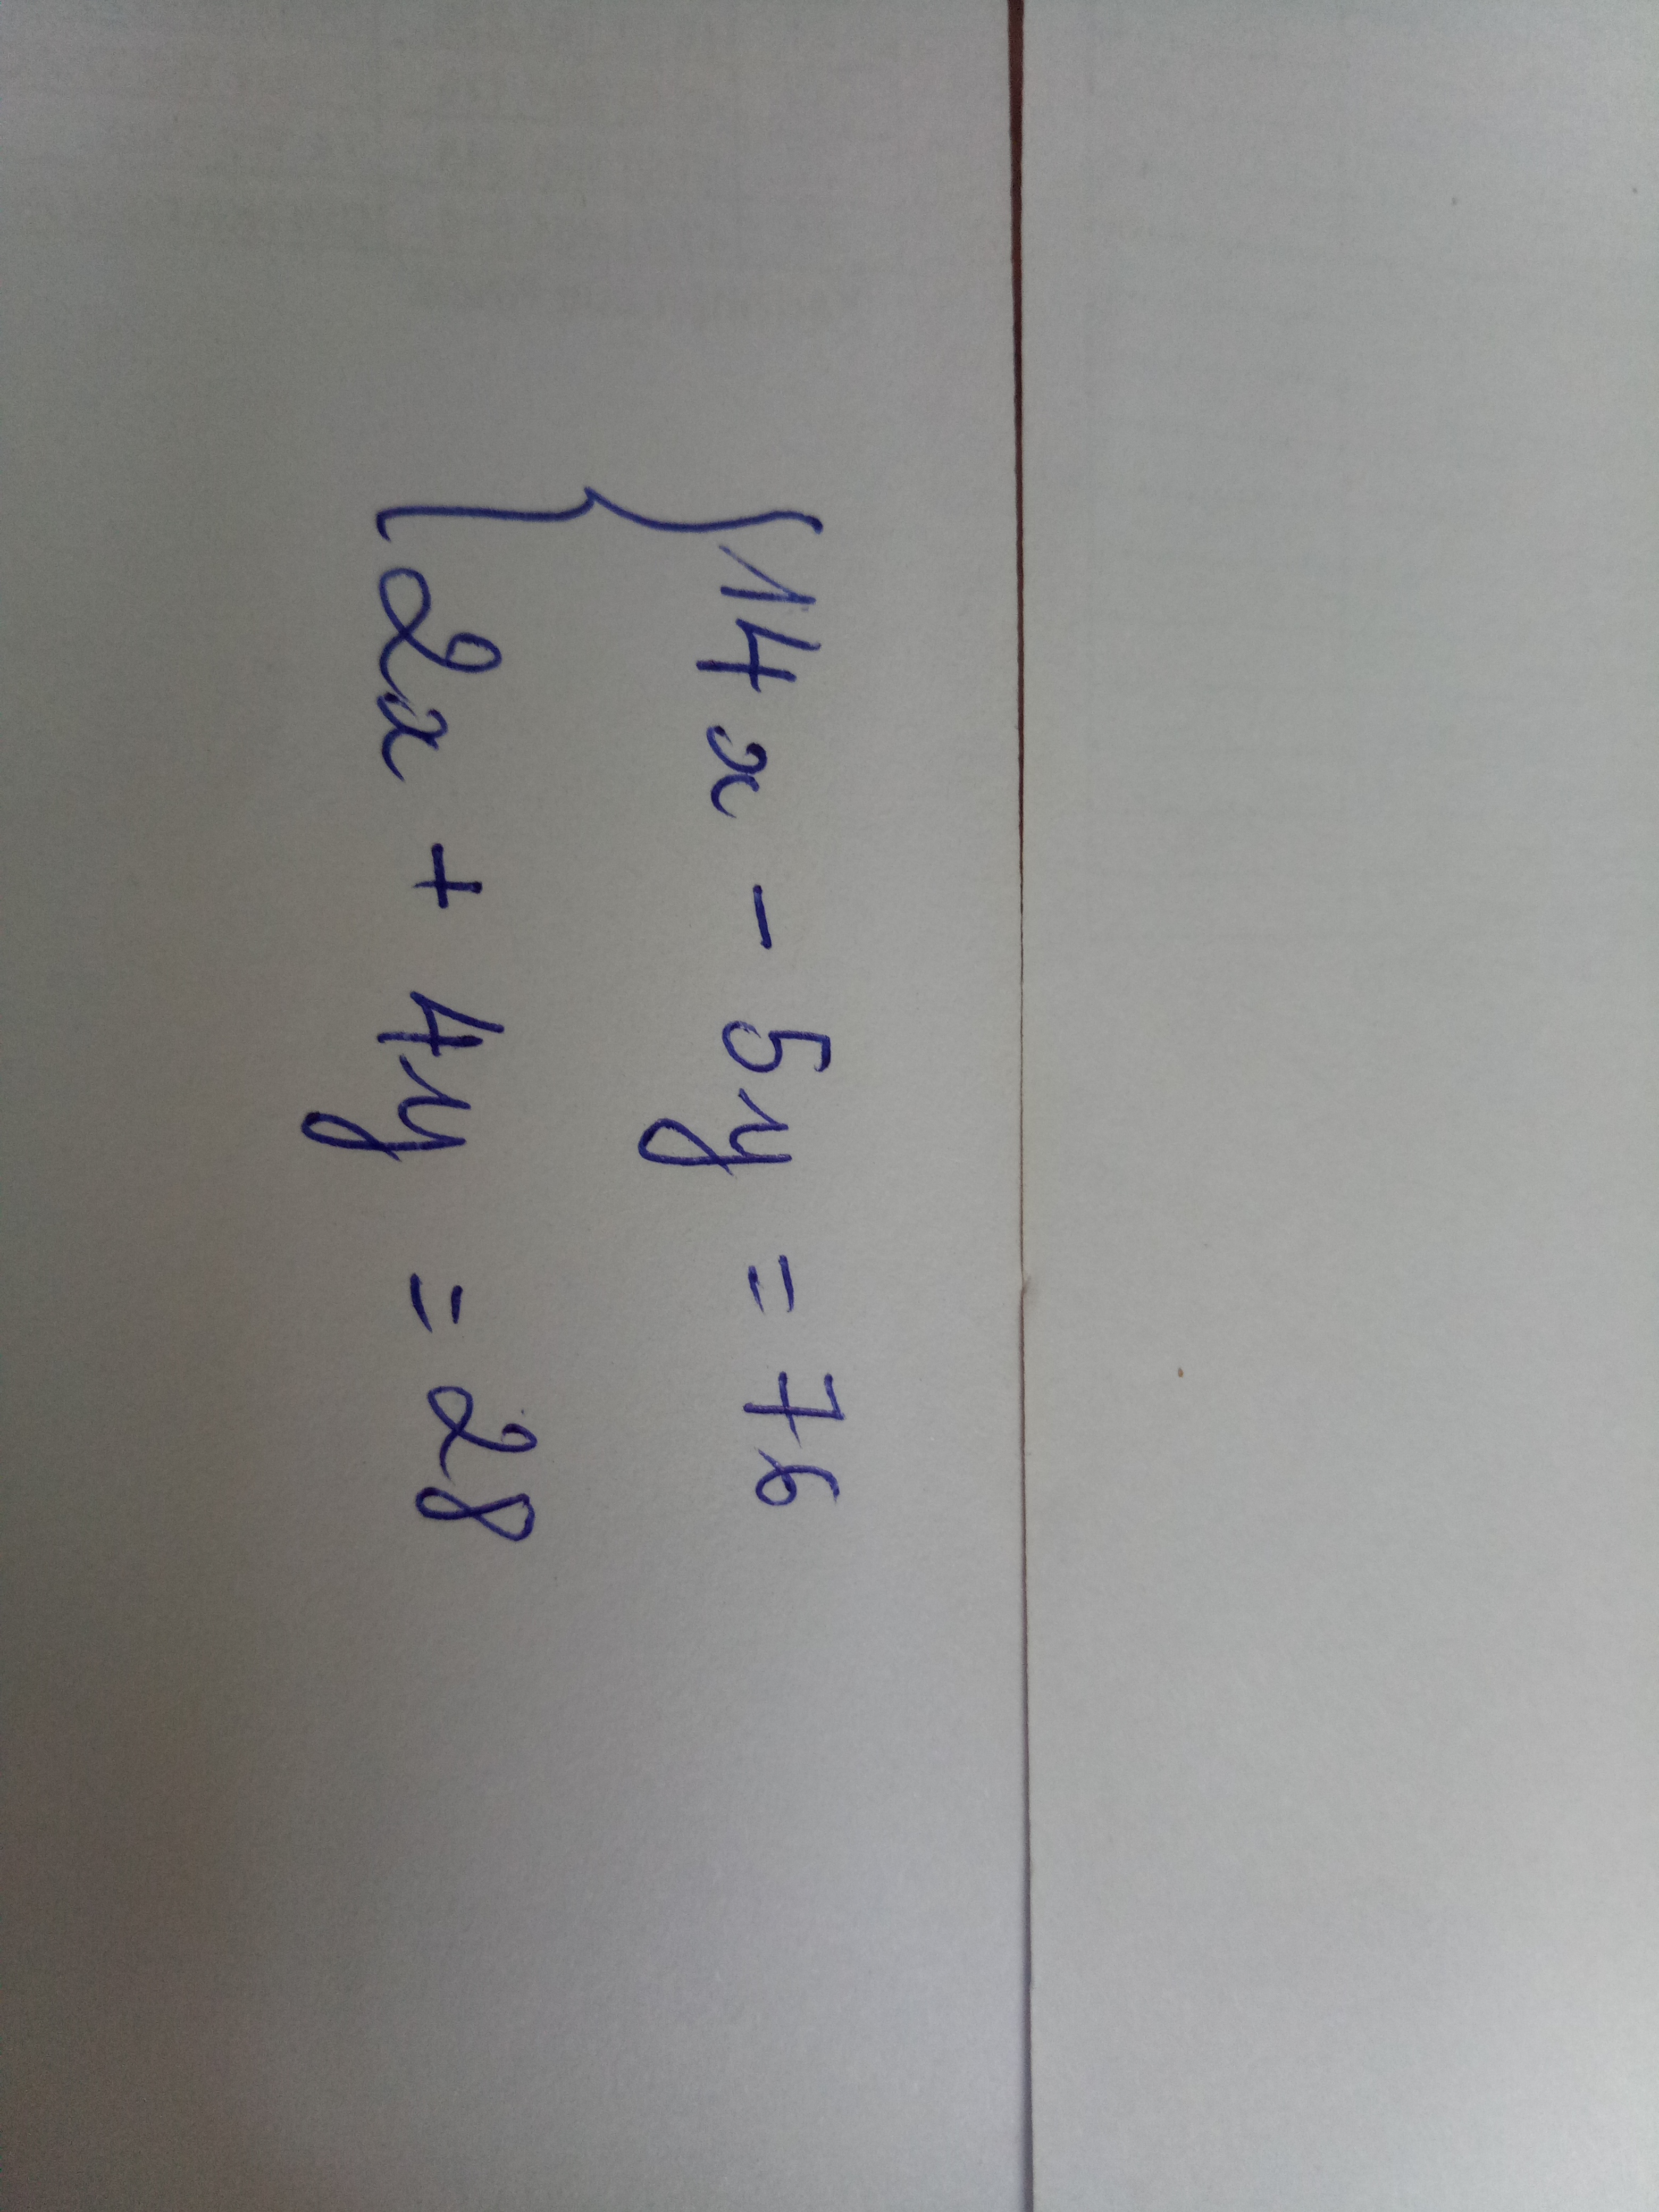 14x - 5y = 76
2x + 4y = 28